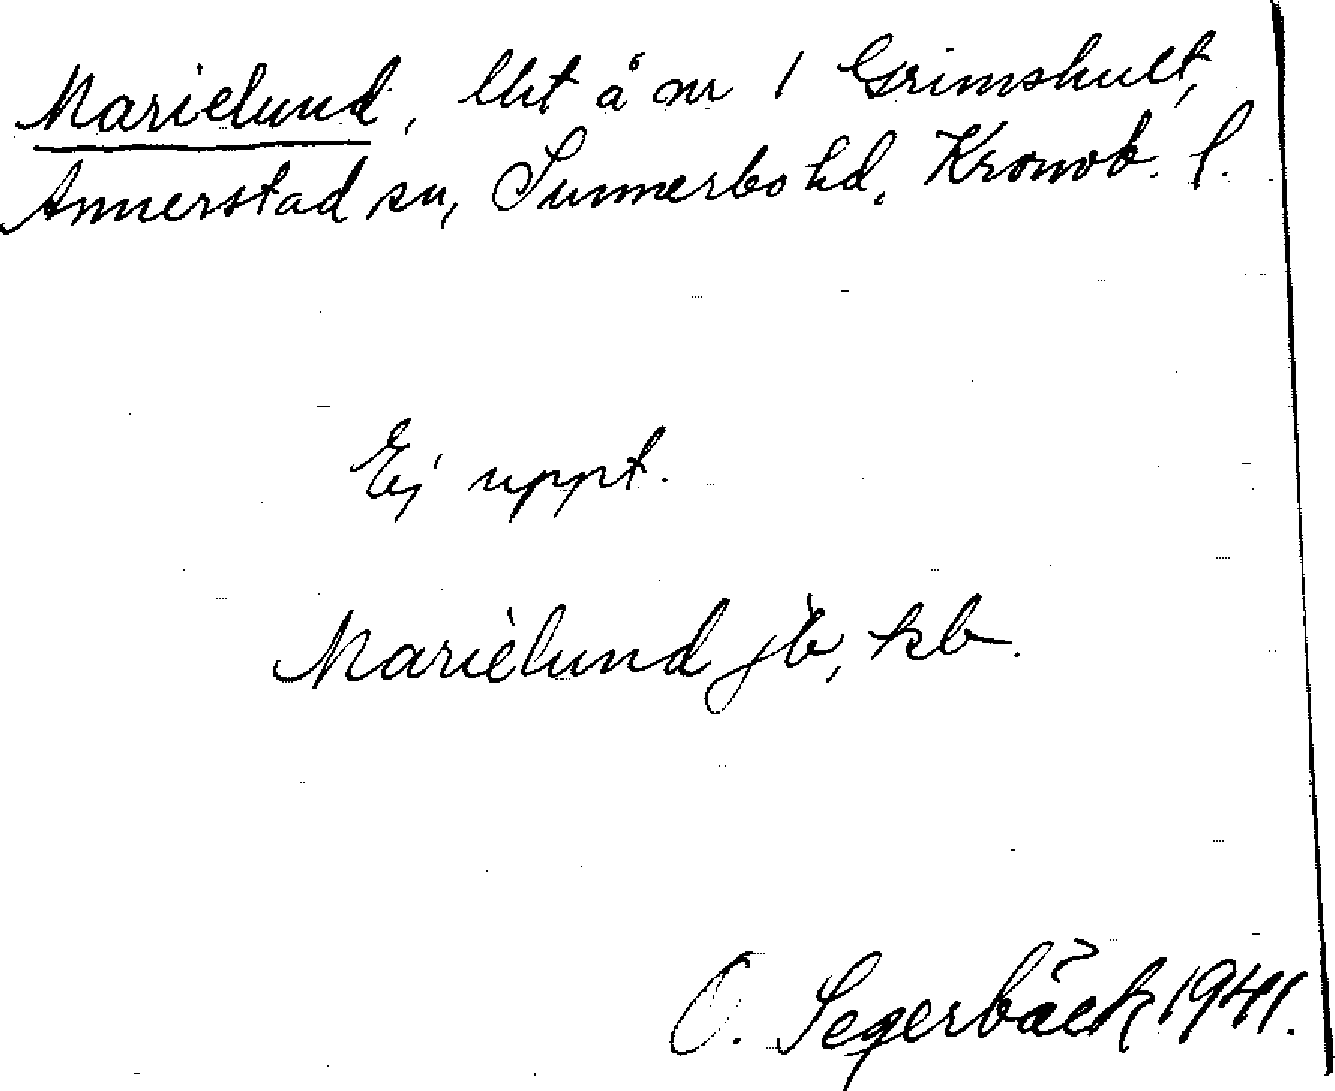 Marielund, lht å nr 1 Grimshult,
Annerstad sn, Sunnerbo hd, Kronob. l.
Ej uppt.
Marielund jb, kb.
O. Segerbäck 1941.